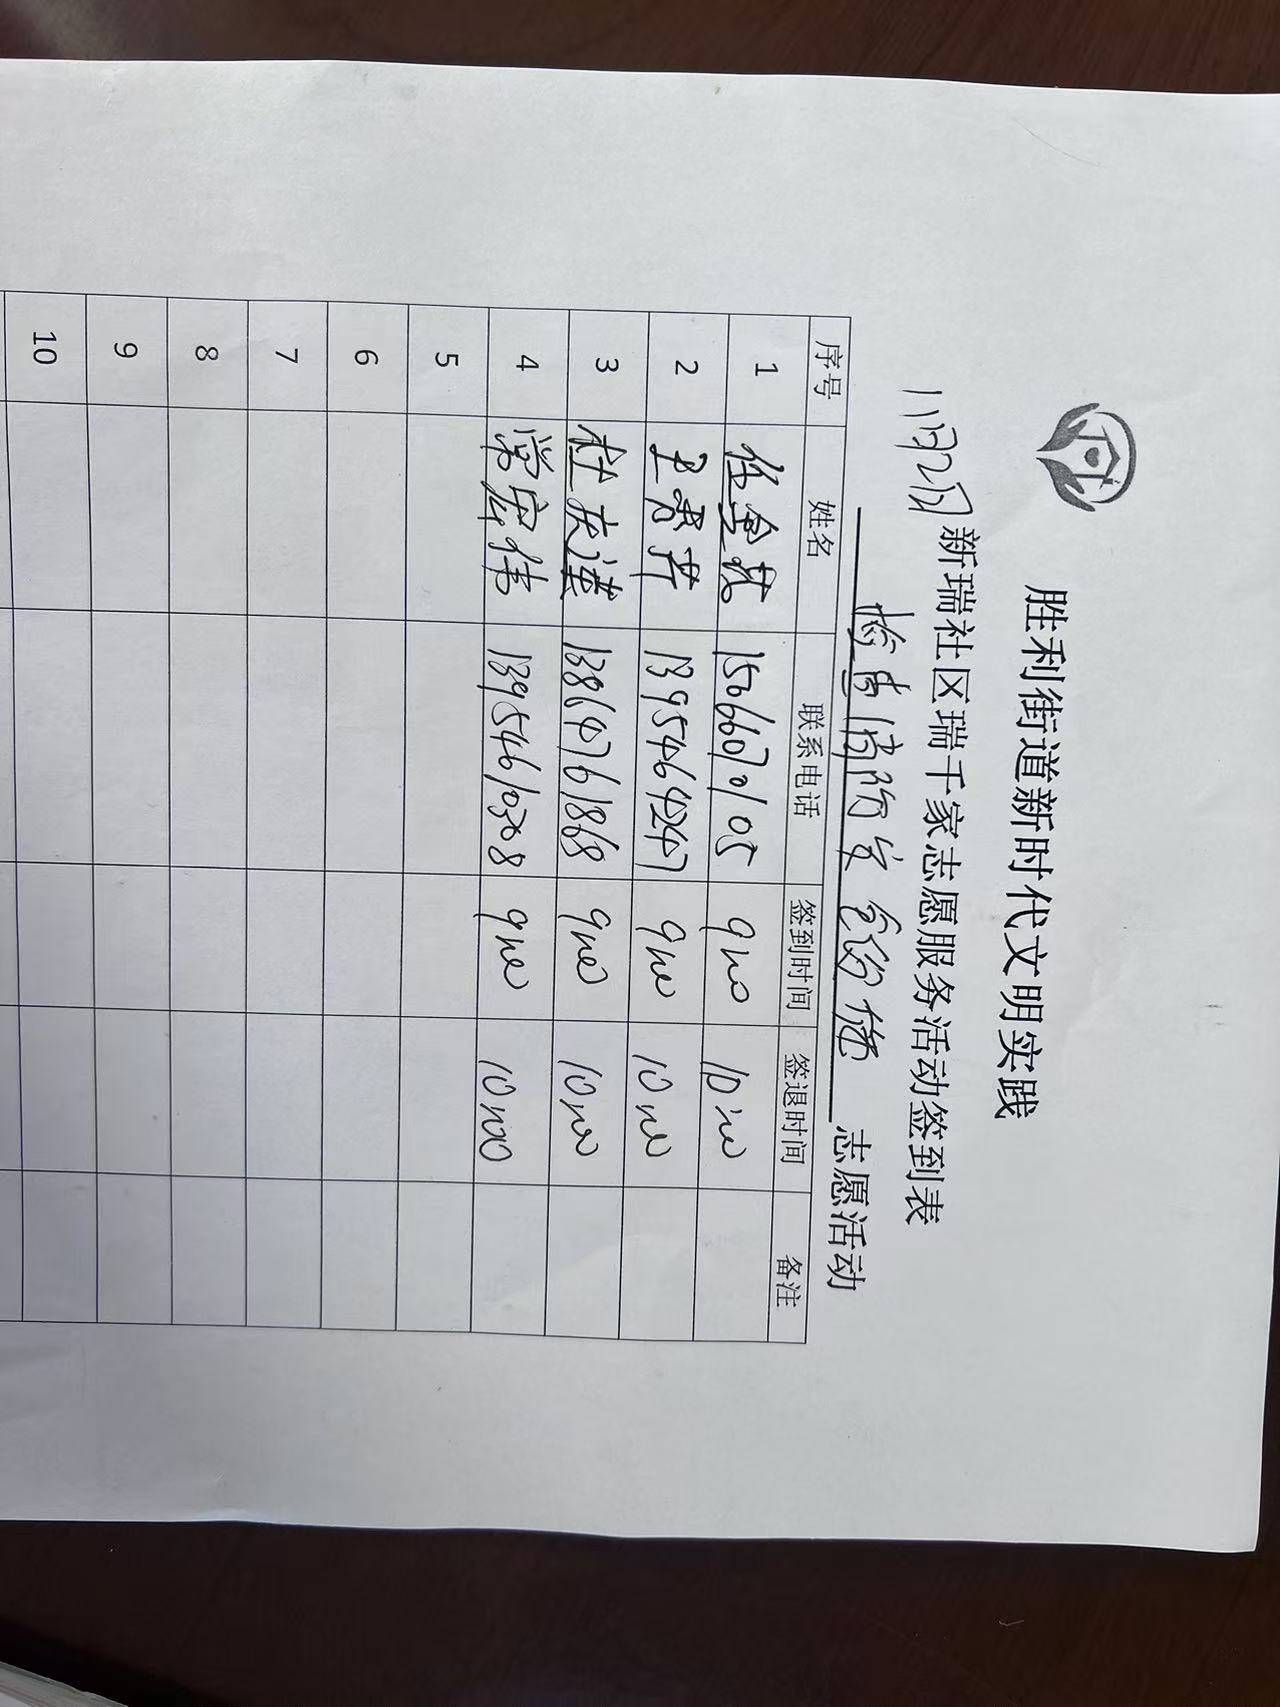 胜利街道新时代文明实践
11月2日 新瑞社区瑞千家志愿服务活动签到表
检查消防安全设施 志愿活动
序号 姓名 联系电话 签到时间 签退时间 备注
1 任金 15066070105 9:00 10:00
2 13954642247 9:00 10:00
3 杜庆莲 13864761868 9:00 10:00
4 常宏伟 13954610308 9:00 10:00
5
6
7
8
9
10